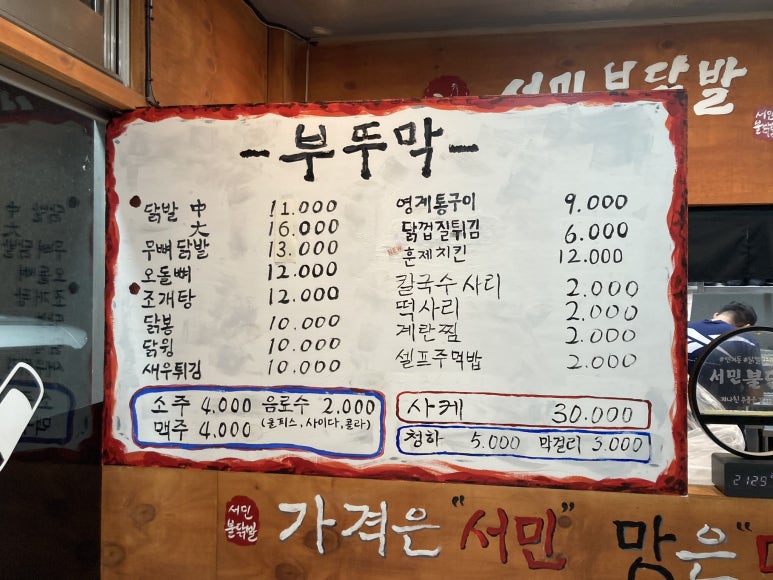 서민 불닭발
-부뚜막-
닭발 中 11.000
大 16.000
무뼈닭발 13.000
오돌뼈 12.000
조개탕 12.000
닭봉 10.000
닭윙 10.000
새우튀김 10.000
영계통구이 9.000
닭껍질튀김 6.000
NEW 훈제치킨 12.000
칼국수사리 2.000
떡사리 2.000
계란찜 2.000
셀프주먹밥 2.000
소주 4.000 음로수 2.000
맥주 4.000 (쿨피스,사이다,콜라)
사케 30.000
청하 5.000 막걸리 3.000
서민
불닭발
가격은 "서민" 맛은 "
서민불